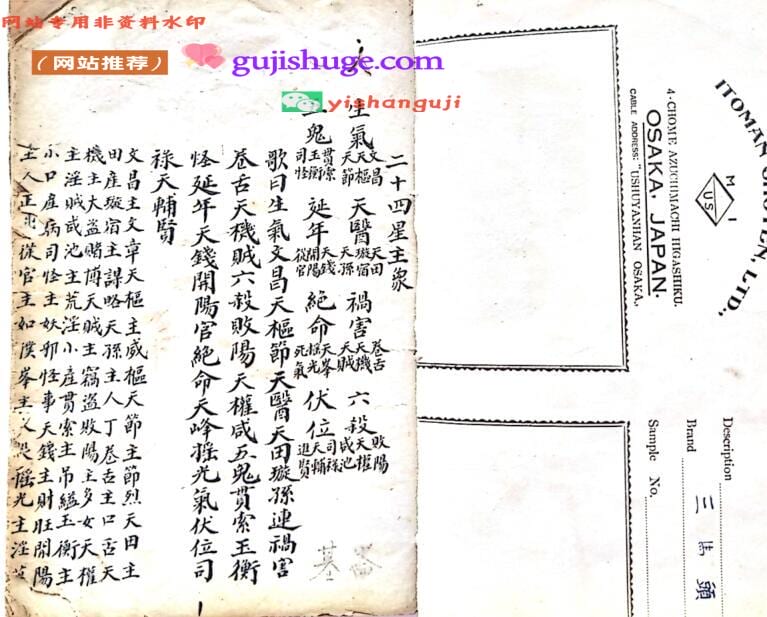 网站专用非资料水印
（网站推荐）
gujishuge.com
yishanguji
二十四星主象
生氣 文昌 天樞 天節 天醫 天田 璇宿 天孫 禍害 卷舌 天機 天賊 六殺 敗陽 天權 咸池
鬼 貫索 玉衡 司怪 延年 天錢 開陽 從官 絕命 天峯 摇光 死氣 伏位 司祿 天輔 進賢
歌曰生氣文昌天樞節天醫天田璇孫連禍害
卷舌天機賊六殺敗陽天權咸五鬼貫索玉衡
怪延年天錢開陽官絕命天峰摇光氣伏位司
祿天輔賢
文昌主文章天樞主威樞天節主節烈天田主
田産璇宿主謀略天孫主人丁卷舌主口舌天
機主大盗賭博天賊主竊盗敗陽主多女天權
主淫賊咸池主荒淫小産貫索主吊縊玉衡主
小口産病司怪主妖邪怪事天錢主財旺開陽
主人正從官主如僕峯主摇光主淫
ITOMAN SHOTEN, LTD.,
M I
US
4-CHOME AZUCHIMACHI HIGASHIKU.
OSAKA, JAPAN.
CABLE ADDRESS: "USHUTANHAN OSAKA,
Description
Brand
三 頭
Sample No.